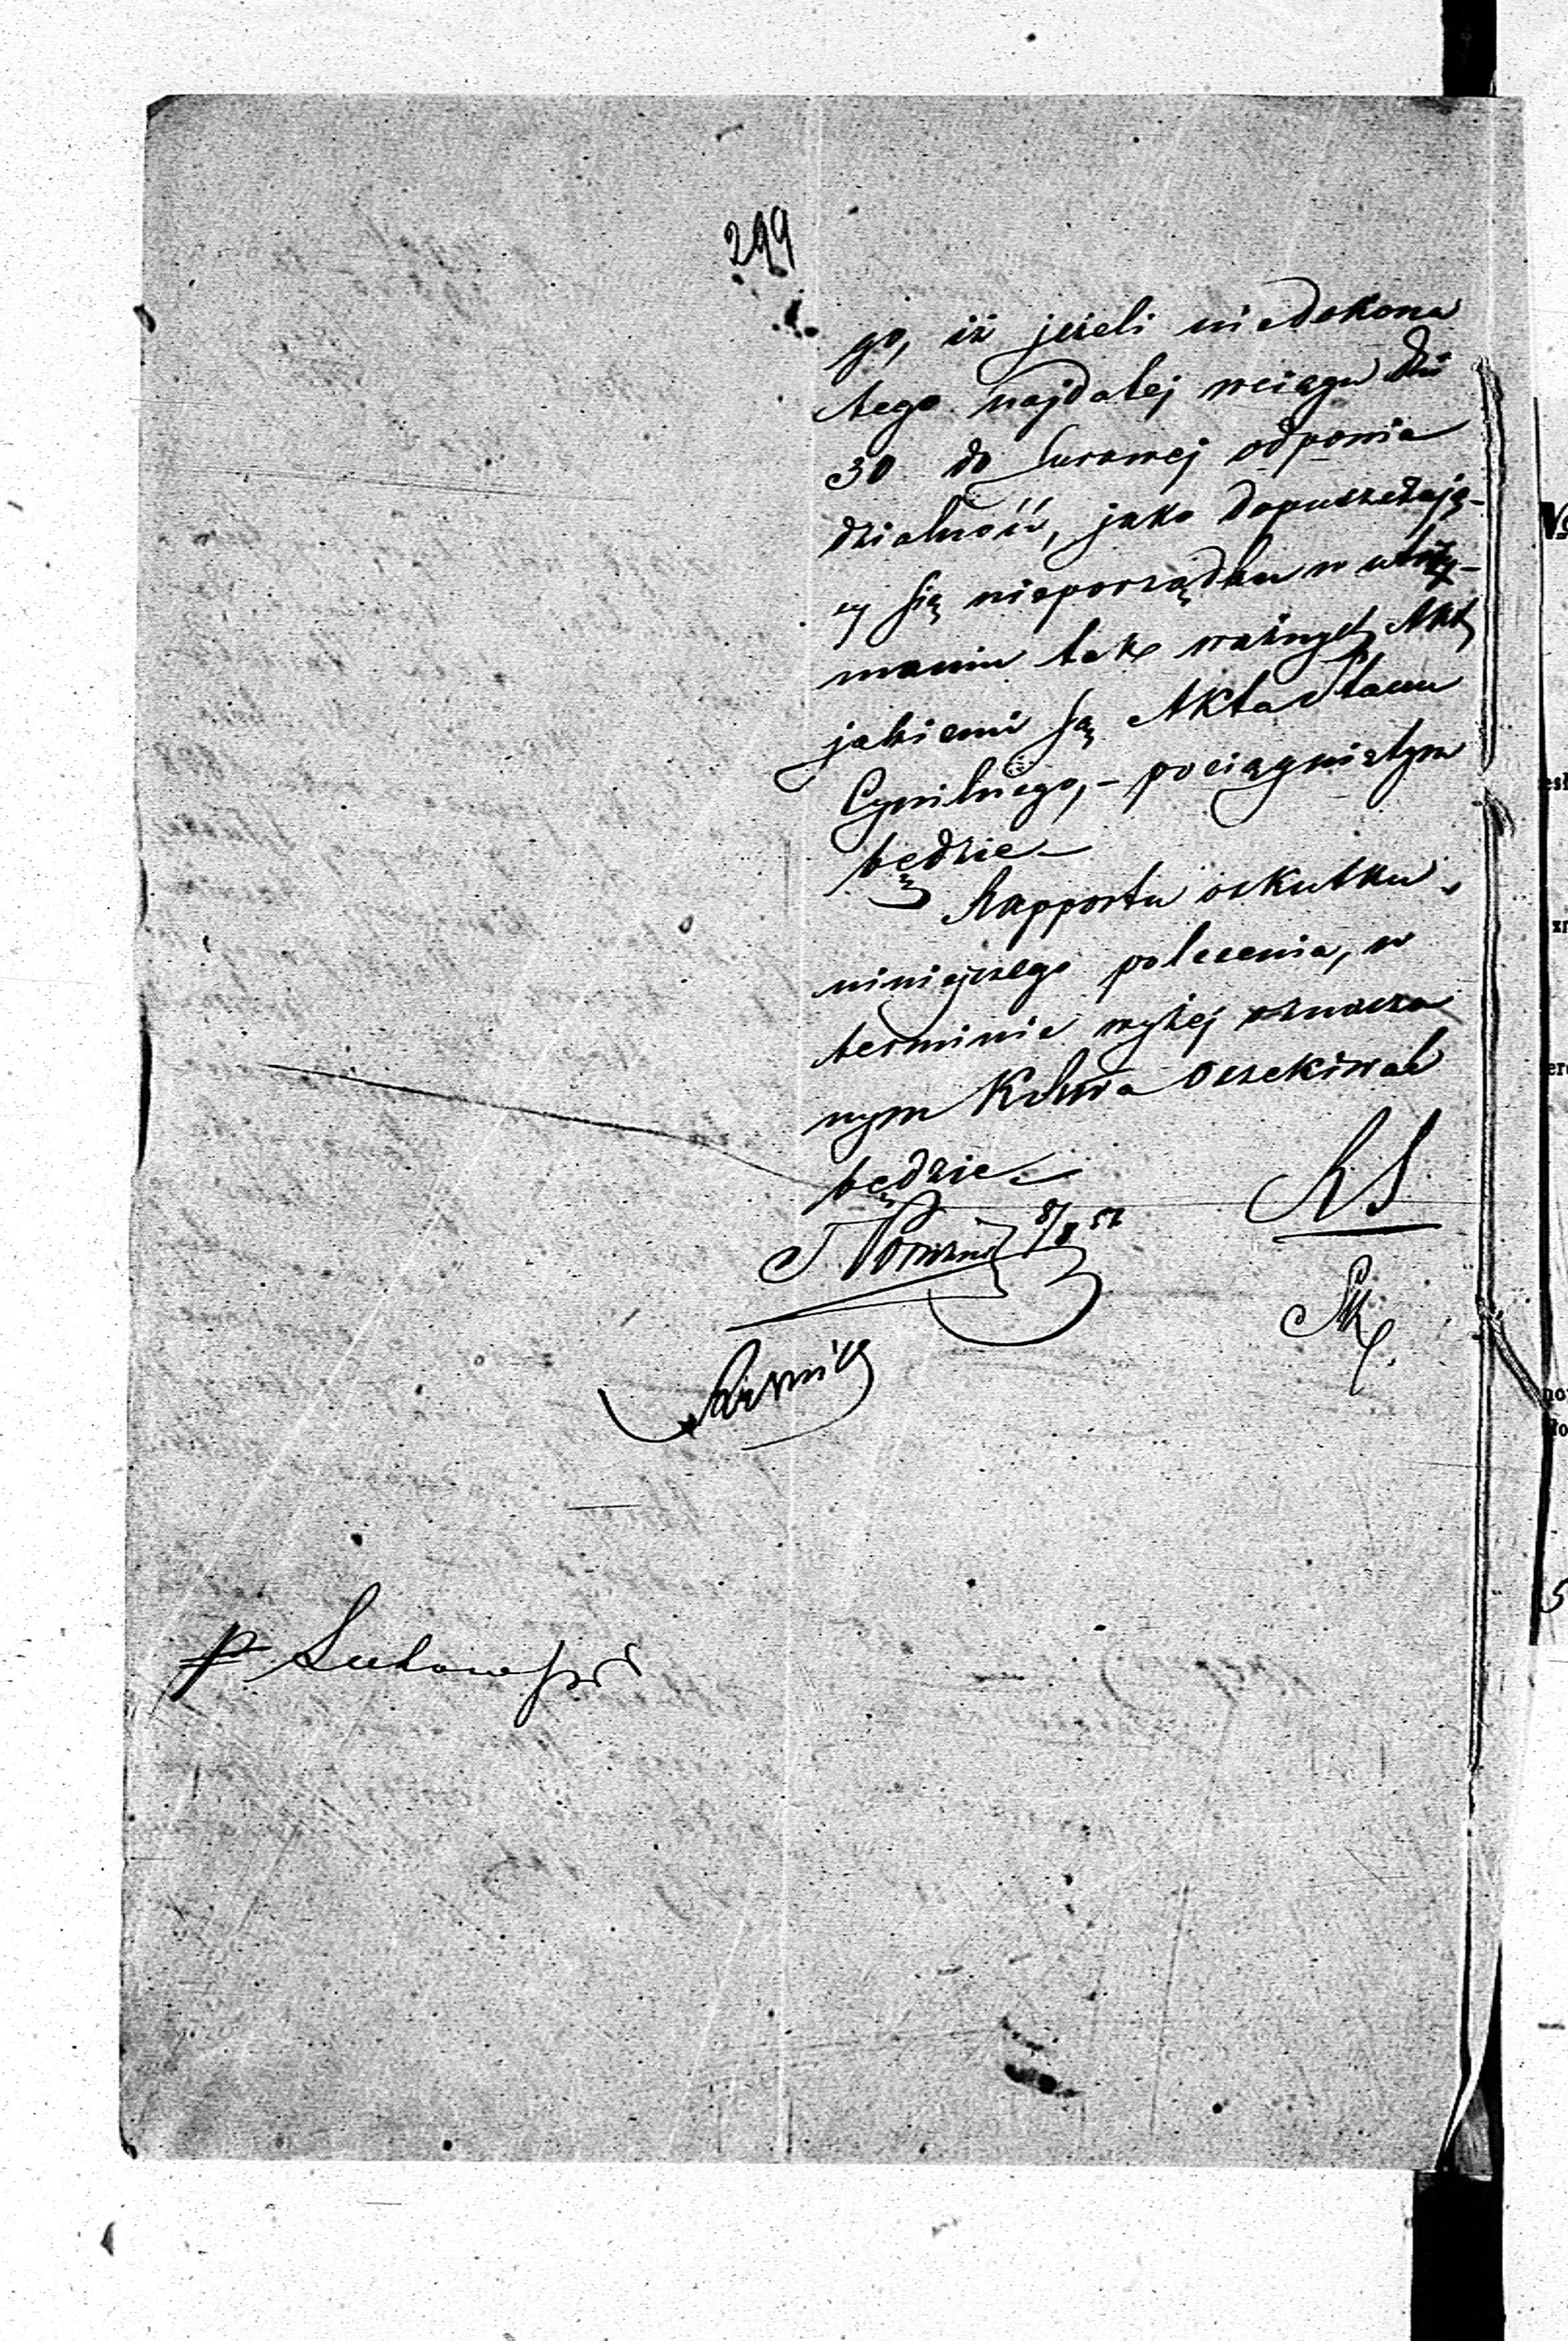 299
go, iż jeżeli niedokona
tego najdalej wciągu dni
30 do surowej odpowie
dzialności, jako dopuszczają-
cy się nieporządku w utrzy-
maniu tak ważnych Akt
jakiemi są Akta Stanu
Cywilnego,- pociągniętym
będzie
Rapportu oskutku
niniejszego polecenia, w
terminie wyżej oznaczo
nym oczekiwać
będzie
RS
8/8 52
p Lutowski